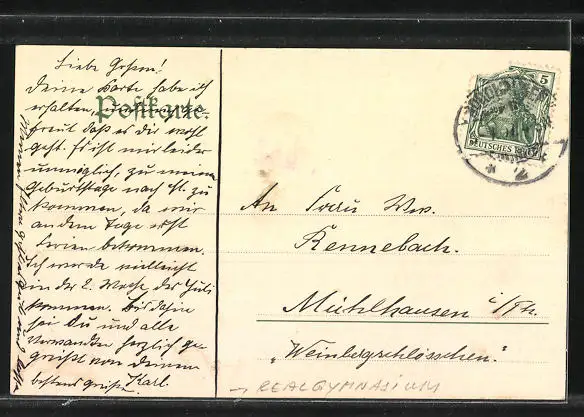 Liebe Großm!
Deine Karte habe ich
erhalten,
Postkarte.
freut daß es dir wohl
geht. Es ist mir leider
unmöglich, zu meinem
Geburtstage nach M. zu
kommen, da wir
an dem Tage erst
Ferien bekommen.
Ich werde vielleicht
in der 2. Woche des Juli
kommen. Bis dahin
sei Du und alle
Verwandten herzlich ge-
grüßt von deinem
Karl.
5
DEUTSCHES REICH
* 2
An Frau Wwe.
Rennebach.
Mühlhausen i/Th.
„Weinbergschlösschen."
– REALGYMNASIUM